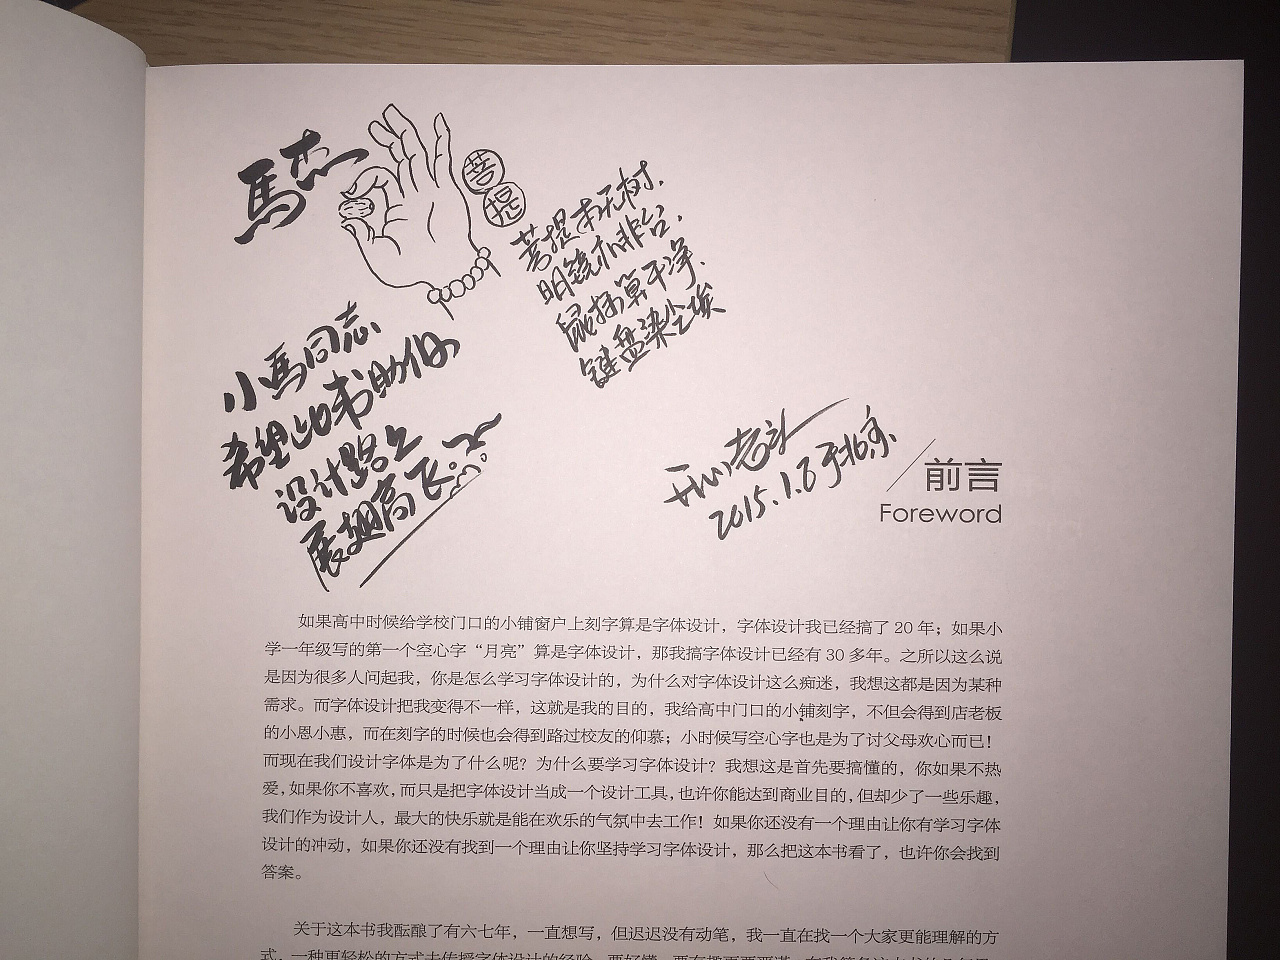 馬杰
菩提
菩提本无树.
明镜亦非台.
鼠标算干净.
键盘染尘埃
小馬同志
希望此书助你
设计路上
展翅高飞
老头
2015.1.8于北京
前言
Foreword
如果高中时候给学校门口的小铺窗户上刻字算是字体设计，字体设计我已经搞了 20 年；如果小
学一年级写的第一个空心字“月亮”算是字体设计，那我搞字体设计已经有 30 多年。之所以这么说
是因为很多人问起我，你是怎么学习字体设计的，为什么对字体设计这么痴迷，我想这都是因为某种
需求。而字体设计把我变得不一样，这就是我的目的，我给高中门口的小铺刻字，不但会得到店老板
的小恩小惠，而在刻字的时候也会得到路过校友的仰慕；小时候写空心字也是为了讨父母欢心而已！
而现在我们设计字体是为了什么呢？为什么要学习字体设计？我想这是首先要搞懂的，你如果不热
爱，如果你不喜欢，而只是把字体设计当成一个设计工具，也许你能达到商业目的，但却少了一些乐趣，
我们作为设计人，最大的快乐就是能在欢乐的气氛中去工作！如果你还没有一个理由让你有学习字体
设计的冲动，如果你还没有找到一个理由让你坚持学习字体设计，那么把这本书看了，也许你会找到
答案。
关于这本书我酝酿了有六七年，一直想写，但迟迟没有动笔，我一直在找一个大家更能理解的方
式，一种更轻松的方式去传授字体设计的经验，要好懂，要有趣更要严谨